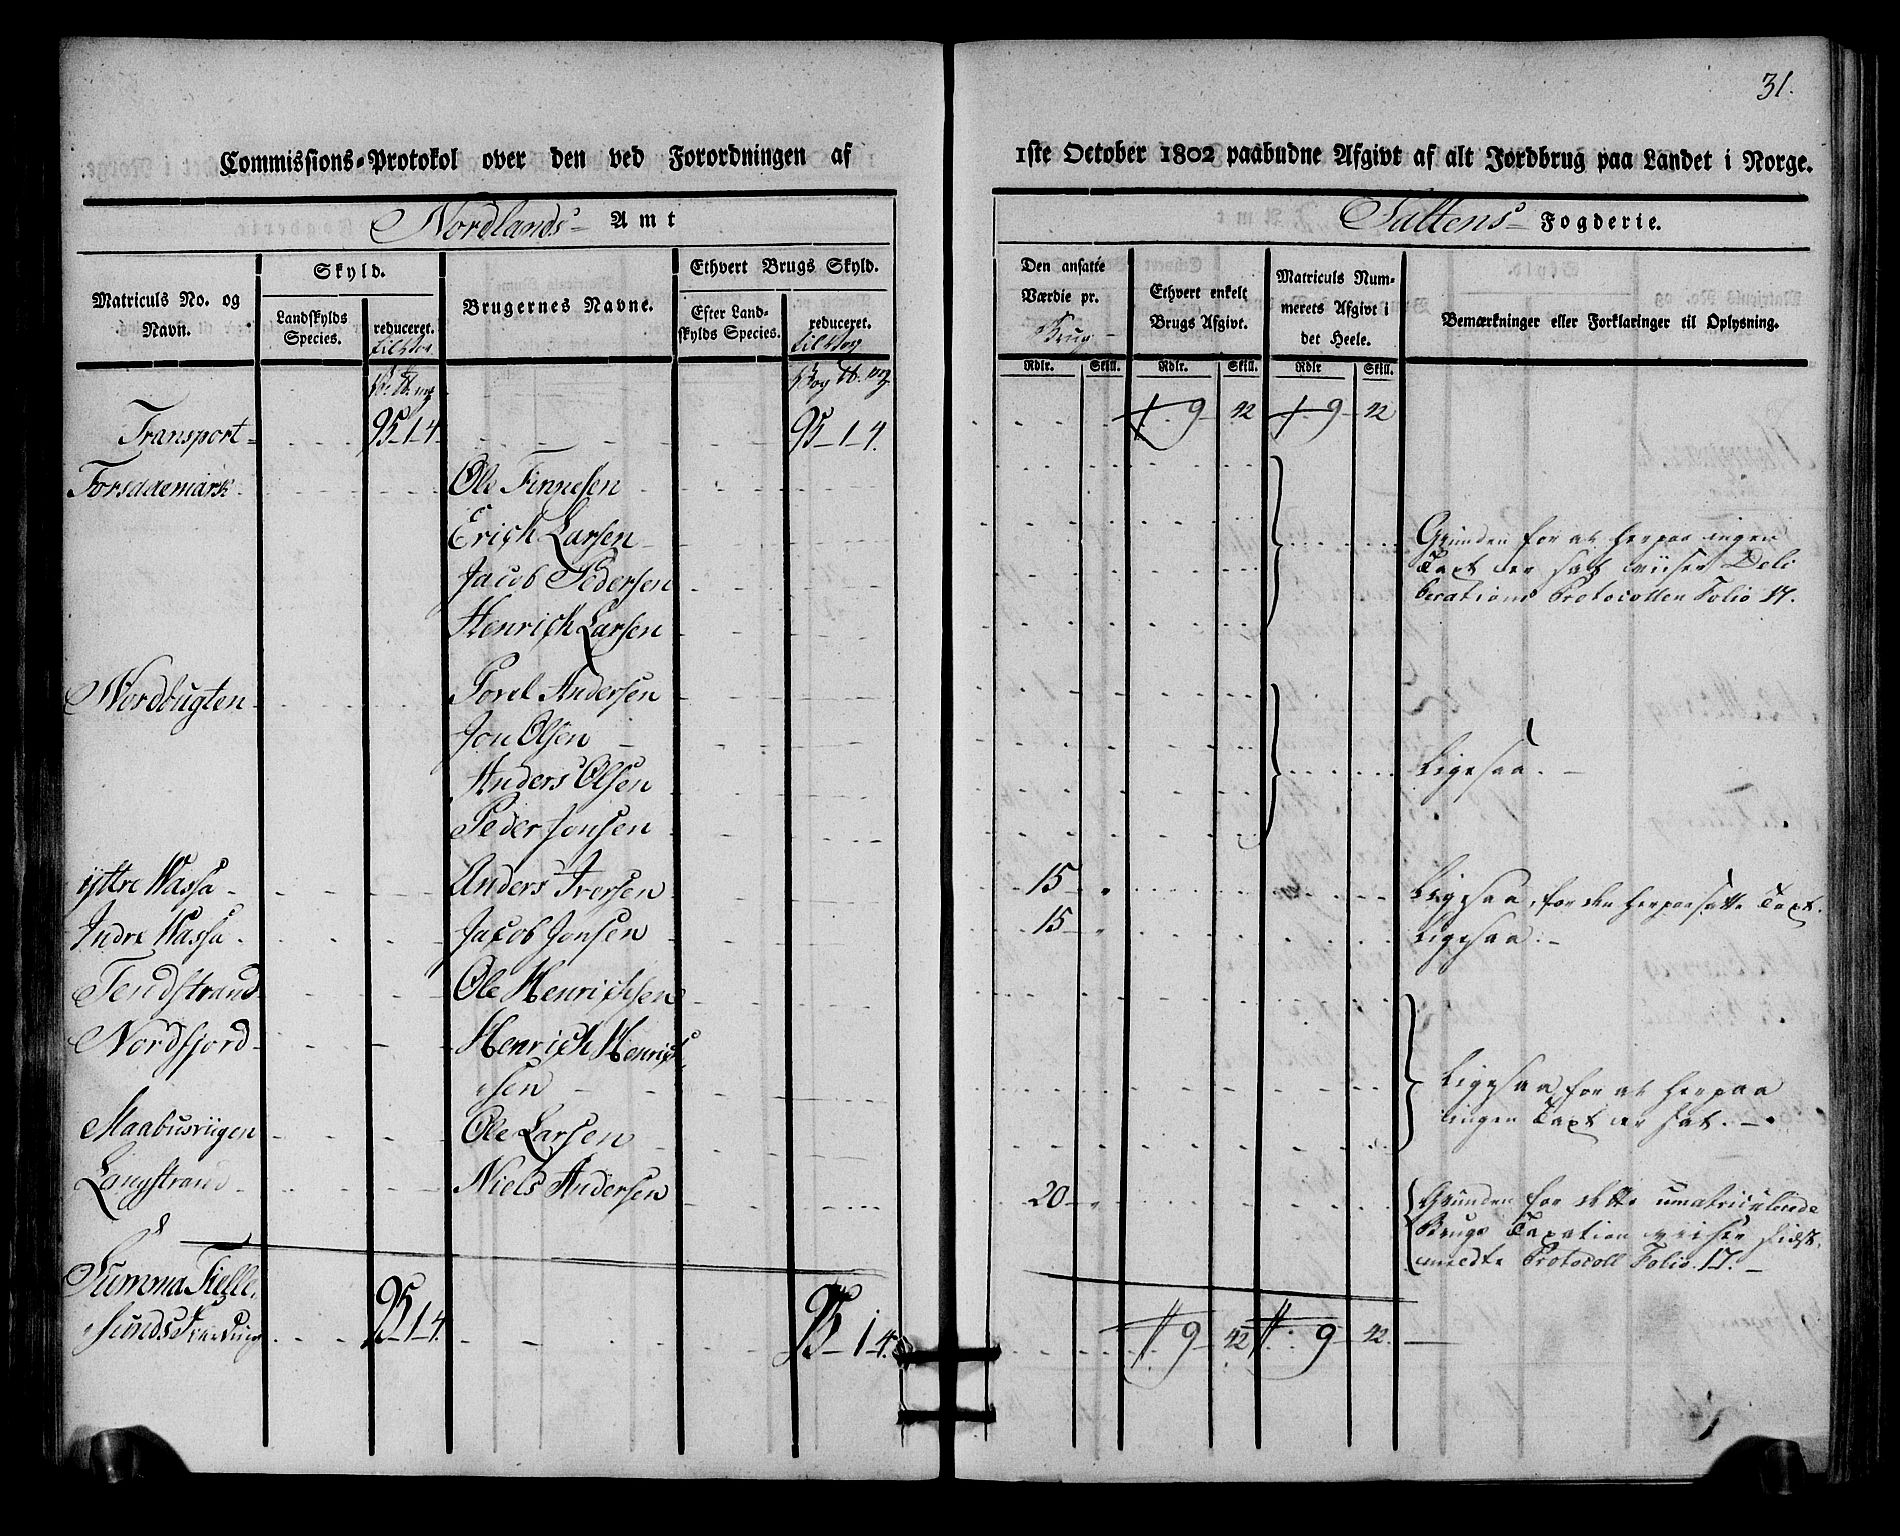 31.
Commissions-Protokol over den ved Forordningen af 1ste October 1802 paabudne Afgivt af alt Jordbrug paa Landet i Norge.
Nordlands Amt
Saltens Fogderie.
Matriculs No. og Navn.
Skyld.
Landskylds Species.
reduceret.
Brugernes Navne.
Ethvert Brugs Skyld.
Efter Landskylds Species.
reduceret.
Den ansatte Værdie pr. Brug
Rdlr. Skill.
Ethvert enkelt Brugs Afgivt.
Rdlr. Skill.
Matriculs Nummerets Afgivt i det Heele.
Rdlr Skill.
Bemærkninger eller Forklaringer til Oplysning.
Transport 95-1-4 95-1-4. 9 42 9 42
Forsaaemark Ole Finnesen
Erich Larsen Grunden for at herpaa ingen
Jacob Pedersen Taxt er sat viiser Deli
Henrich Larsen berations Protocollen Folio 17.
Nordbugten Povel Andersen
Jon Olsen
Anders Olsen Ligesaa.
Peder Jonsen
yttre Wassa Anders Iversen 15 Ligesaa, for den herpaasatte Taxt.
Indre Wassa Jacob Jonsen 15 Ligesaa.
Tendstrand Ole Henrichsen
Nordfjord Henrich Henrich
sen Ligesaa for at herpaa
Maabusviigen Ole Larsen ingen Taxt er sat.
Langstrand Niels Andersen 20 Grunden for dette umatriculerede
Brugs Taxation viiser sidst
meldte Protocoll Folio. 17.
Summa
95-1-4. 95-1-4. 9 42 9 42.